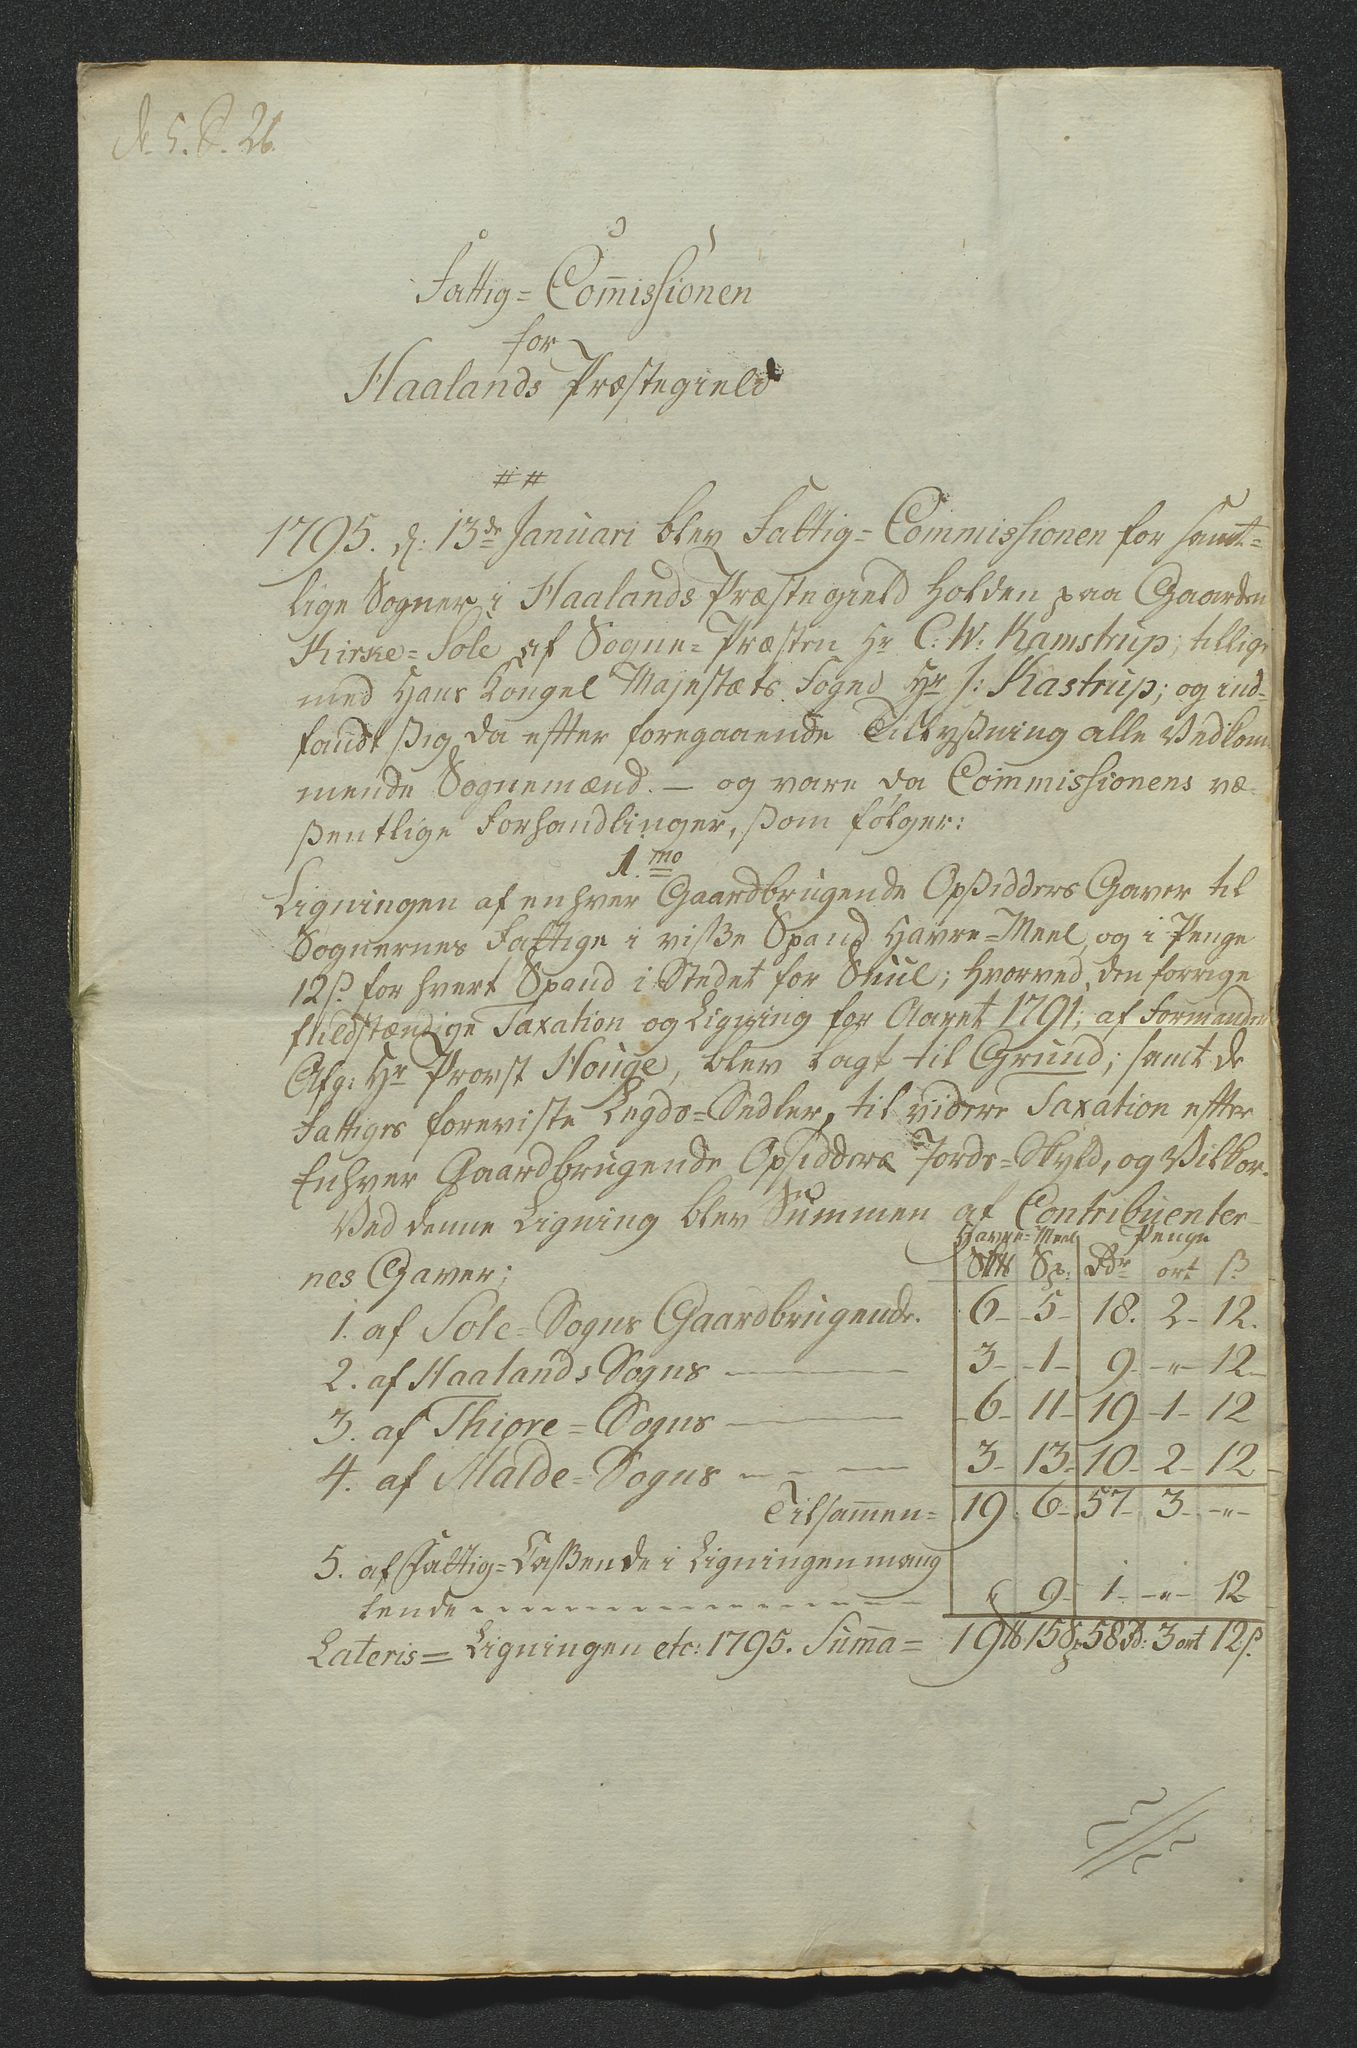 5. 26.
Fattig=Com̅issionen
for
Haalands Præstegield
##
1795. d: 13de Januari blev Fattig=Commissionen for samt=
lige Sogner i Haalands Præstegield holden paa Gaarden
Kirke=Sole af Sogne=Præsten Hr C: W: Kamstrup; tillige
med Hans Kongel Majestæts Foged Hr J: Kastrup; og ind-
fandt ßig da efter foregaaende Tillysning alle Vedkom
mende Sognemænd. — og vare da Commissionens væ-
ßentlige Forhandlinger, ßom følger:
1.mo
Ligningen af enhver Gaardbrugende Opßidders Gaver til
Sognernes Fattige i viße Spand Havre=Meel og i Penge
12ß. for hvert Spand i Stedet for Suul; hvorved den forrige
fuldstændige Taxation og Ligning for Aaret 1791; af Formanden
Afg: Hr Provst Houge, blev lagt til Grund; samt de
Fattiges foreviste Legds=Sedler, til videre Taxation efter
Enhver Gaardbrugende Opsidders Jords=Skyld, og Vilkor.
Ved denne Ligning blev Summen af Contribuenter-
Havre=Meel Penge
nes Gaver; Sp: Rdr ort ß.
1. af Sole=Sogns Gaardbrugende. 6- 5- 18. 2- 12.
2. af Haalands Sogns —— 3- 1- 9- -"- 12-
3. af Thiore=Sogns —— 6- 11- 19- 1- 12
4. af Malde=Sogns —— 3- 13- 10- 2- 12
Tilsam̅en= 19. 6- 57- 3- -"-
5. af Fattig=Caßen de i Ligningen mang
lende - - - - - - - - " 9- 1- -"- 12
Lateris= Ligningen etc: 1795. Sum̅a= 19 15 Sp 58 Rd: 3 ort 12ß.